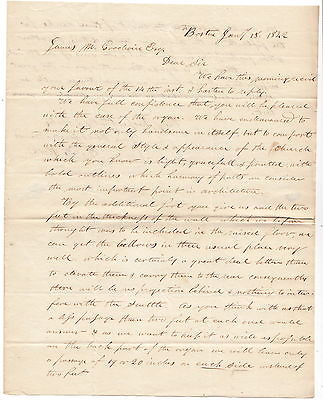 Boston Jany 15th 1842
James M. Goodwin Esqr
Dear Sir
We have this morning recd
your favour of the 14th inst. & hasten to reply.
We have full confidence that you will be pleased
with the case of the organ. We have endeavoured to
make it not only handsome in itself but to comport
with the general style & appearance of the Church
which you know is light, graceful & pointed with
bold outlines which harmony of parts we consider
the most important point in architecture.
By the additional foot you give us and the two
feet in the thickness of the wall which we before
thought was to be included in the raised floor, we
can get the bellows in their usual place very
well which is certainly a great deal better than
to elevate them & carry them to the rear consequently
there will be no projection behind & nothing to inter-
fere with the Shuttle. As you think with us that
a less passage than two feet at each end would
answer & as we want to keep it as wide as possible
on the back part of the organ we will leave only
a passage of 19 or 20 inches on each side instead of
two feet